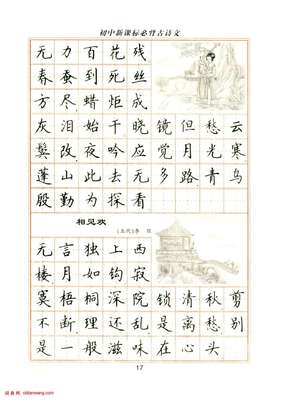 初中新课标必背古诗文
无力百花残
春蚕到死丝
方尽蜡炬成
灰泪始干晓镜但愁云
鬓改夜吟应觉月光寒
蓬山此去无多路青鸟
殷勤为探看
相见欢
(五代)李煜
无言独上西
楼月如钩寂
寞梧桐深院锁清秋剪
不断理还乱是离愁别
是一般滋味在心头
17